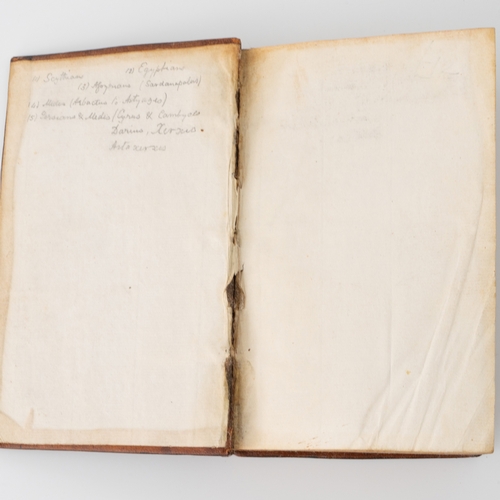 (1) Scythians (3) Egyptians
(2) Assyrians (Sardanapalus)
(4) Medes (Arbactus & Astyages)
(5) Persians & Medes (Cyrus & Cambyses
Darius, Xerxes
Artaxerxes